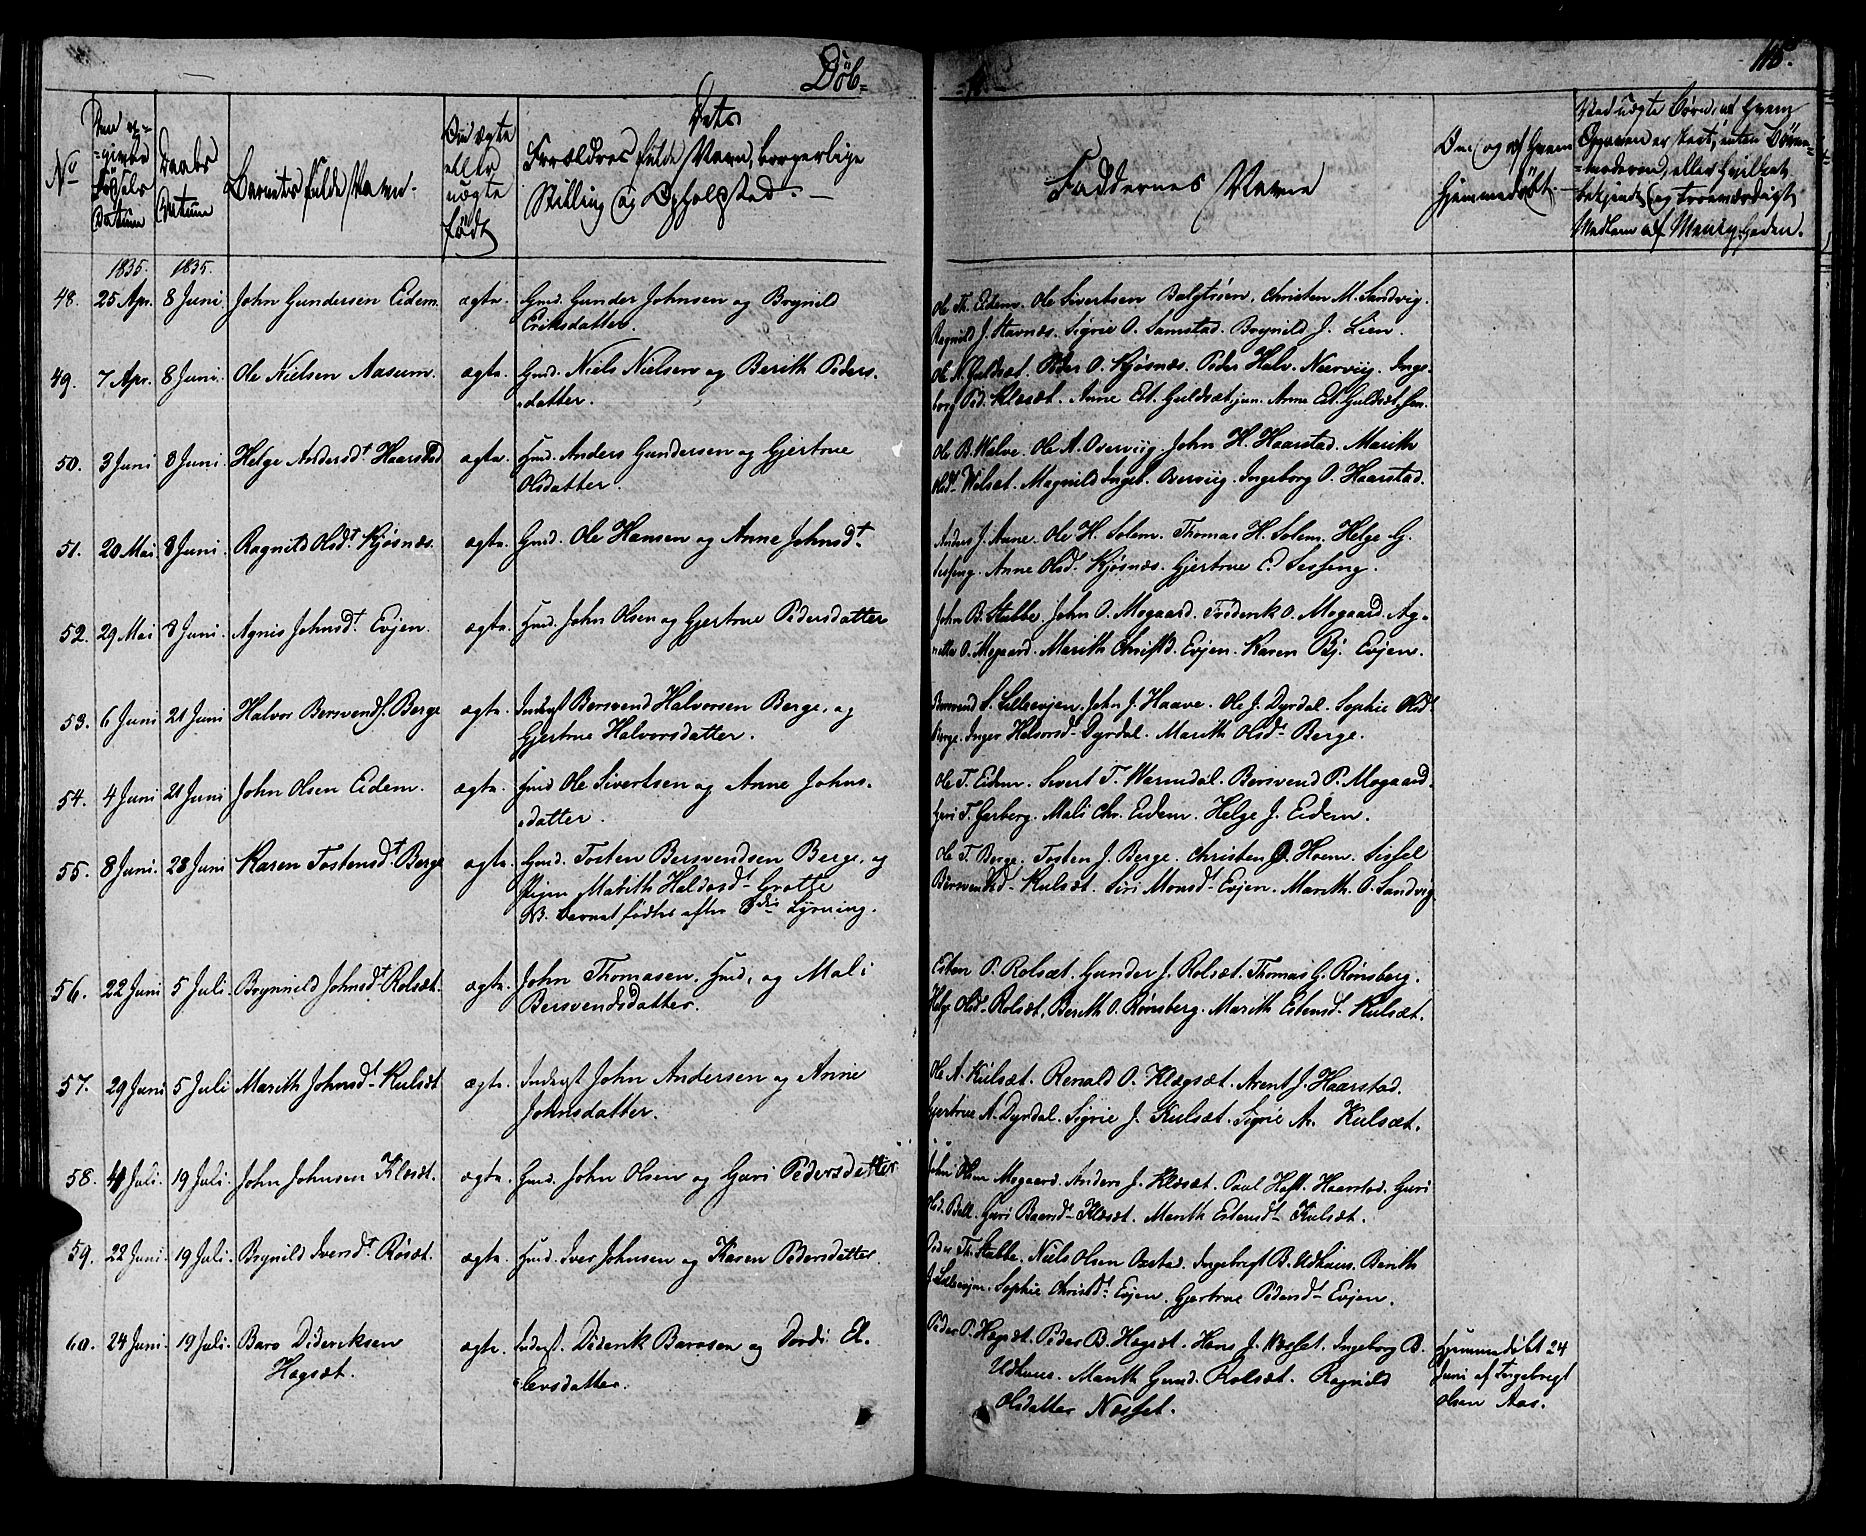 Døb=
115.
No
Daabs
Datum
Barnets fulde Navn.
Om ægte
eller
uægte
født
Dets
Forældres fulde Navn, borgerlige
Stilling og Opholdsted.
Faddernes Navne
Om og af hvem
hjemmedøbt.
1835. 1835.
48. 25 Apr. 8 Juni John Gundersen Eidem. ægte. Gmd. Gunder Johnsen og Brynild
Eriksdatter.
Ole Th. Eidem. Ole Sivertsen Christen M. Sandvig.
Ragnild J. Stavnæs. Sigrie O. Samstad. Brynild J. Lien.
49. 7 Apr. 8 Juni. Ole Nielsen Aasum. ægte. Gmd. Niels Nielsen og Berith Peders-
datter.
Ole N. Guldsæt. Peder O. Kjøsnæs. Peder Halv. Nærviig. Inge-
borg Ped. Klæsæt. Anne Est. Guldsæt jun. Anne Est. Guldsæt sen.
50. 3 Juni 8 Juni. Helge Andersdt Haarstad ægte. Hmd. Anders Gundersen og Gjertrue
Olsdatter.
Ole B. Ole A. John H. Haarstad. Marith
Olsdt. Magnild Ingeborg O. Haarstad.
51. 20 Mai 8 Juni. Ragnild Olsdt. Kjøsnæs. ægte. Gmd. Ole Hansen og Anne Johnsdt.
Anders J. Aune. Ole H. Solem. Thomas H. Solem. Helge G.
Sesseng. Anne Olsd. Kjøsnæs. Gjertrue E. Sesseng.
52. 29 Mai 8 Juni. Agnis Johnsdt. Evjen. ægte. Hmd. John Olsen og Gjertrue Pedersdatter
John B. Stubbe. John O. Mogaard. Frederik O. Mogaard. Ag-
O. Mogaard. Marith Christd. Evjen. Karen Bj. Evjen.
53. 6 Juni 21 Juni Halvor Bersvends. Berge ægte. Inderst Bersvend Halvorsen Berge, og
Gjertrue Halvorsdatter.
Bersvend S. Lilleevjen. John J. Haave. Ole J. Dyrdal. Sophie Olsdt.
Berge. Inger Halvorsdt. Dyrdal. Marith Olsdt. Berge.
54. 4 Juni 21 Juni John Olsen Eidem. ægte. Hmd Ole Sivertsen og Anne Johns-
datter.
Ole T. Eidem. Sivert T. Warmdal. Bersvend P. Mogaard.
Guri T. Garberg. Mali Chr. Eidem. Helge J. Eidem.
55. 8 Juni. 28 Juni Karen Tostensdt. Berge ægte. Gmd. Tosten Bersvendsen Berge, og
Pigen Marith Haldosdt. Grotte
NB. Barnet fødtes efter 3die Lysning.
Ole T. Berge. Tosten J. Berge. Christen O. Hoem. Sissel
Bersvendsd. Kulsæt. Siri Monsdt. Evjen. Marith O. Sandvig.
56. 22 Juni 5 Juli Brynnild Johnsdt. Rolsæt. ægte. John Thomasen. Hmd, og Mali
Bersvendsdatter.
Esten P. Rolsæt. Gunder J. Rolsæt. Thomas G. Rønsberg.
Olsdt. Rolsæt. Berith O. Rønsberg. Marith Estensdt. Kulsæt.
57. 29 Juni 5 Juli Marith Johnsdt. Kulsæt ægte. Inderst John Andersen og Anne
Johnsdatter.
Ole A. Kulsæt. Renald O. Klægsæt. Arent J. Haarstad.
Gjertrue A. Dyrdal. Sigrie J. Kulsæt. Sigrie A. Kulsæt.
58. 4 Juli. 19 Juli. John Johnsen Klæsæt. ægte. Gmd. John Olsen og Guri Pedersdatter
John Olsen Mogaard. Anders J. Klæsæt. Paul Haarstad. Guri
Old. Ball. Guri Baarsdt. Klæsæt. Marith Estensdt. Kulsæt.
59. 22 Juni. 19 Juli. Brynild Iversdt. Røsæt. ægte. Hmd. Iver Johnsen og Karen Pedersdatter
Peder Th. Stubbe. Niels Olsen Ingebrigt B. Udhuus. Berith
J. Lilleevjen. Sophie Christdt. Evjen. Gjertrue Pedersdt. Evjen.
60. 24 Juni. 19 Juli. Baro Dideriksen
Hogsæt.
ægte. Inderst. Diderik Barosen og Dordi El-
levsdatter.
Peder P. Hogsæt. Peder B. Hogsæt. Hans J. Næsset. Ingeborg B.
Udhuus. Marith Gund. Rolsæt. Ragnild
Olsdatter Næsset.
Hjemmedøbt 24
Juni af Ingebregt
Olsen Aas.